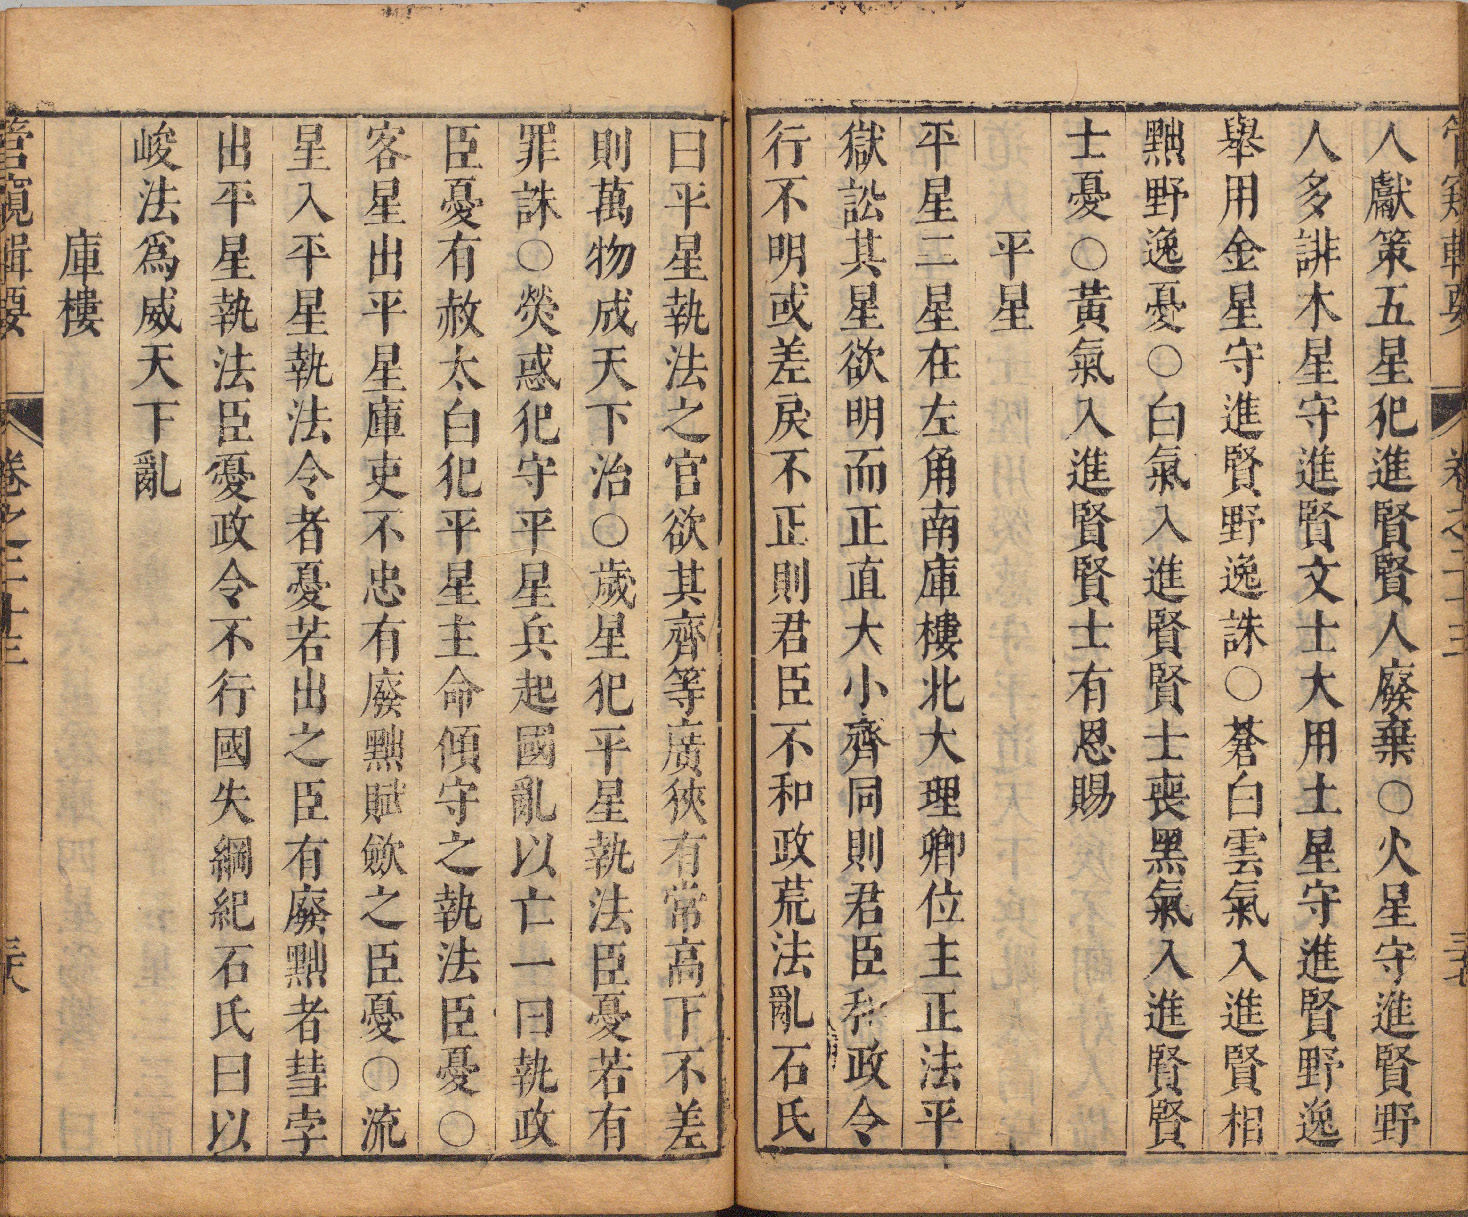 管窺輯要 卷之二十三 三十七
人獻策五星犯進賢賢人廢棄○火星守進賢野
人多誹木星守進賢文士大用土星守進賢野逸
舉用金星守進賢野逸誅○蒼白雲氣入進賢相
黜野逸憂○白氣入進賢賢士喪黑氣入進賢賢
士憂○黃氣入進賢賢士有恩賜
平星
平星二星在左角南庫樓北大理卿位主正法平
獄訟其星欲明而正直大小齊同則君臣和政令
行不明或差戾不正則君臣不和政荒法亂石氏
曰平星執法之官欲其齊等廣狹有常高下不差
則萬物成天下治○歲星犯平星執法臣憂若有
罪誅○熒惑犯守平星兵起國亂以亡一曰執政
臣憂有赦太白犯平星主命傾守之執法臣憂○
客星出平星庫吏不忠有廢黜賦斂之臣憂○流
星入平星執法令者憂若出之臣有廢黜者彗孛
出平星執法臣憂政令不行國失綱紀石氏曰以
峻法爲威天下亂
庫樓
管窺輯要 卷之二十三 三十八